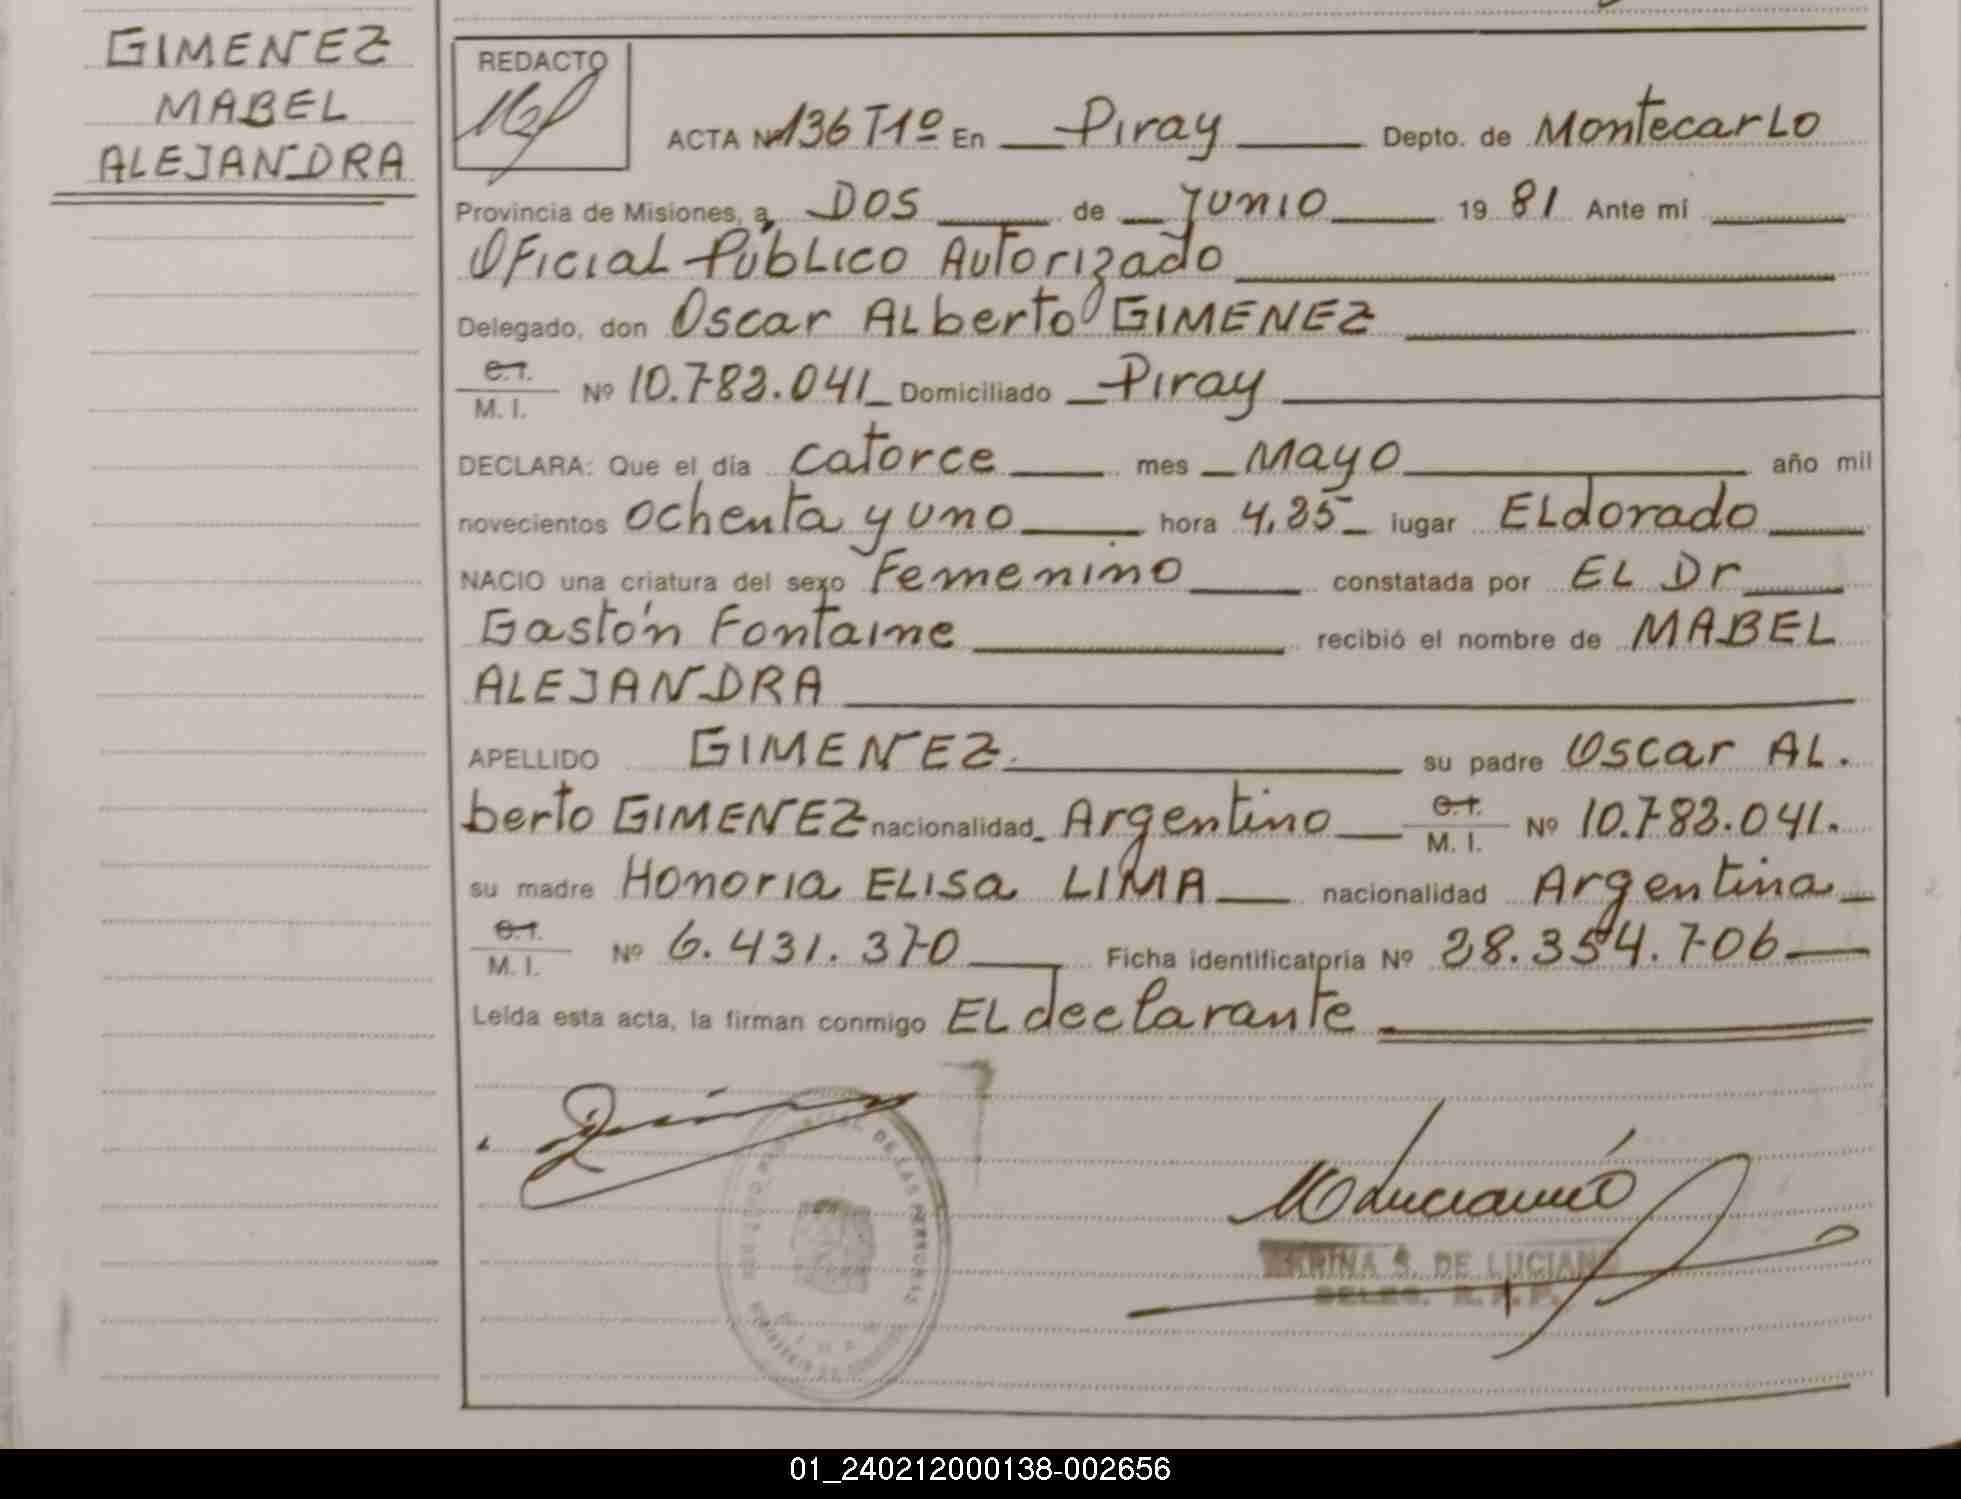 GIMENEZ
MABEL
ALEJANDRA
REDACTO
ACTA Nº 136 T1º En Piray Depto. de Montecarlo
Provincia de Misiones, a, DOS de Junio 19 81 Ante mi
Oficial Público Autorizado
Delegado, don Oscar Alberto GIMENEZ
C.I.
M. I. Nº 10.782.041 Domiciliado Piray
DECLARA: Que el día catorce mes Mayo año mil
novecientos ochenta y uno hora 4,25 lugar Eldorado
NACIO una criatura del sexo Femenino constatada por EL Dr
Gastón Fontaine recibió el nombre de MABEL
ALEJANDRA
APELLIDO GIMENEZ. su padre Oscar Al.
berto GIMENEZ nacionalidad Argentino C.I.
M. I. Nº 10.782.041.
su madre Honoria Elisa LIMA nacionalidad Argentina
C.I.
M. I. Nº 6.431.370 Ficha identificatoria Nº 28.354.706
Leída esta acta, la firman conmigo El declarante
DE LAS PERSONAS
S. DE LUCIANO
DELEG. R.P.P.
01_240212000138-002656